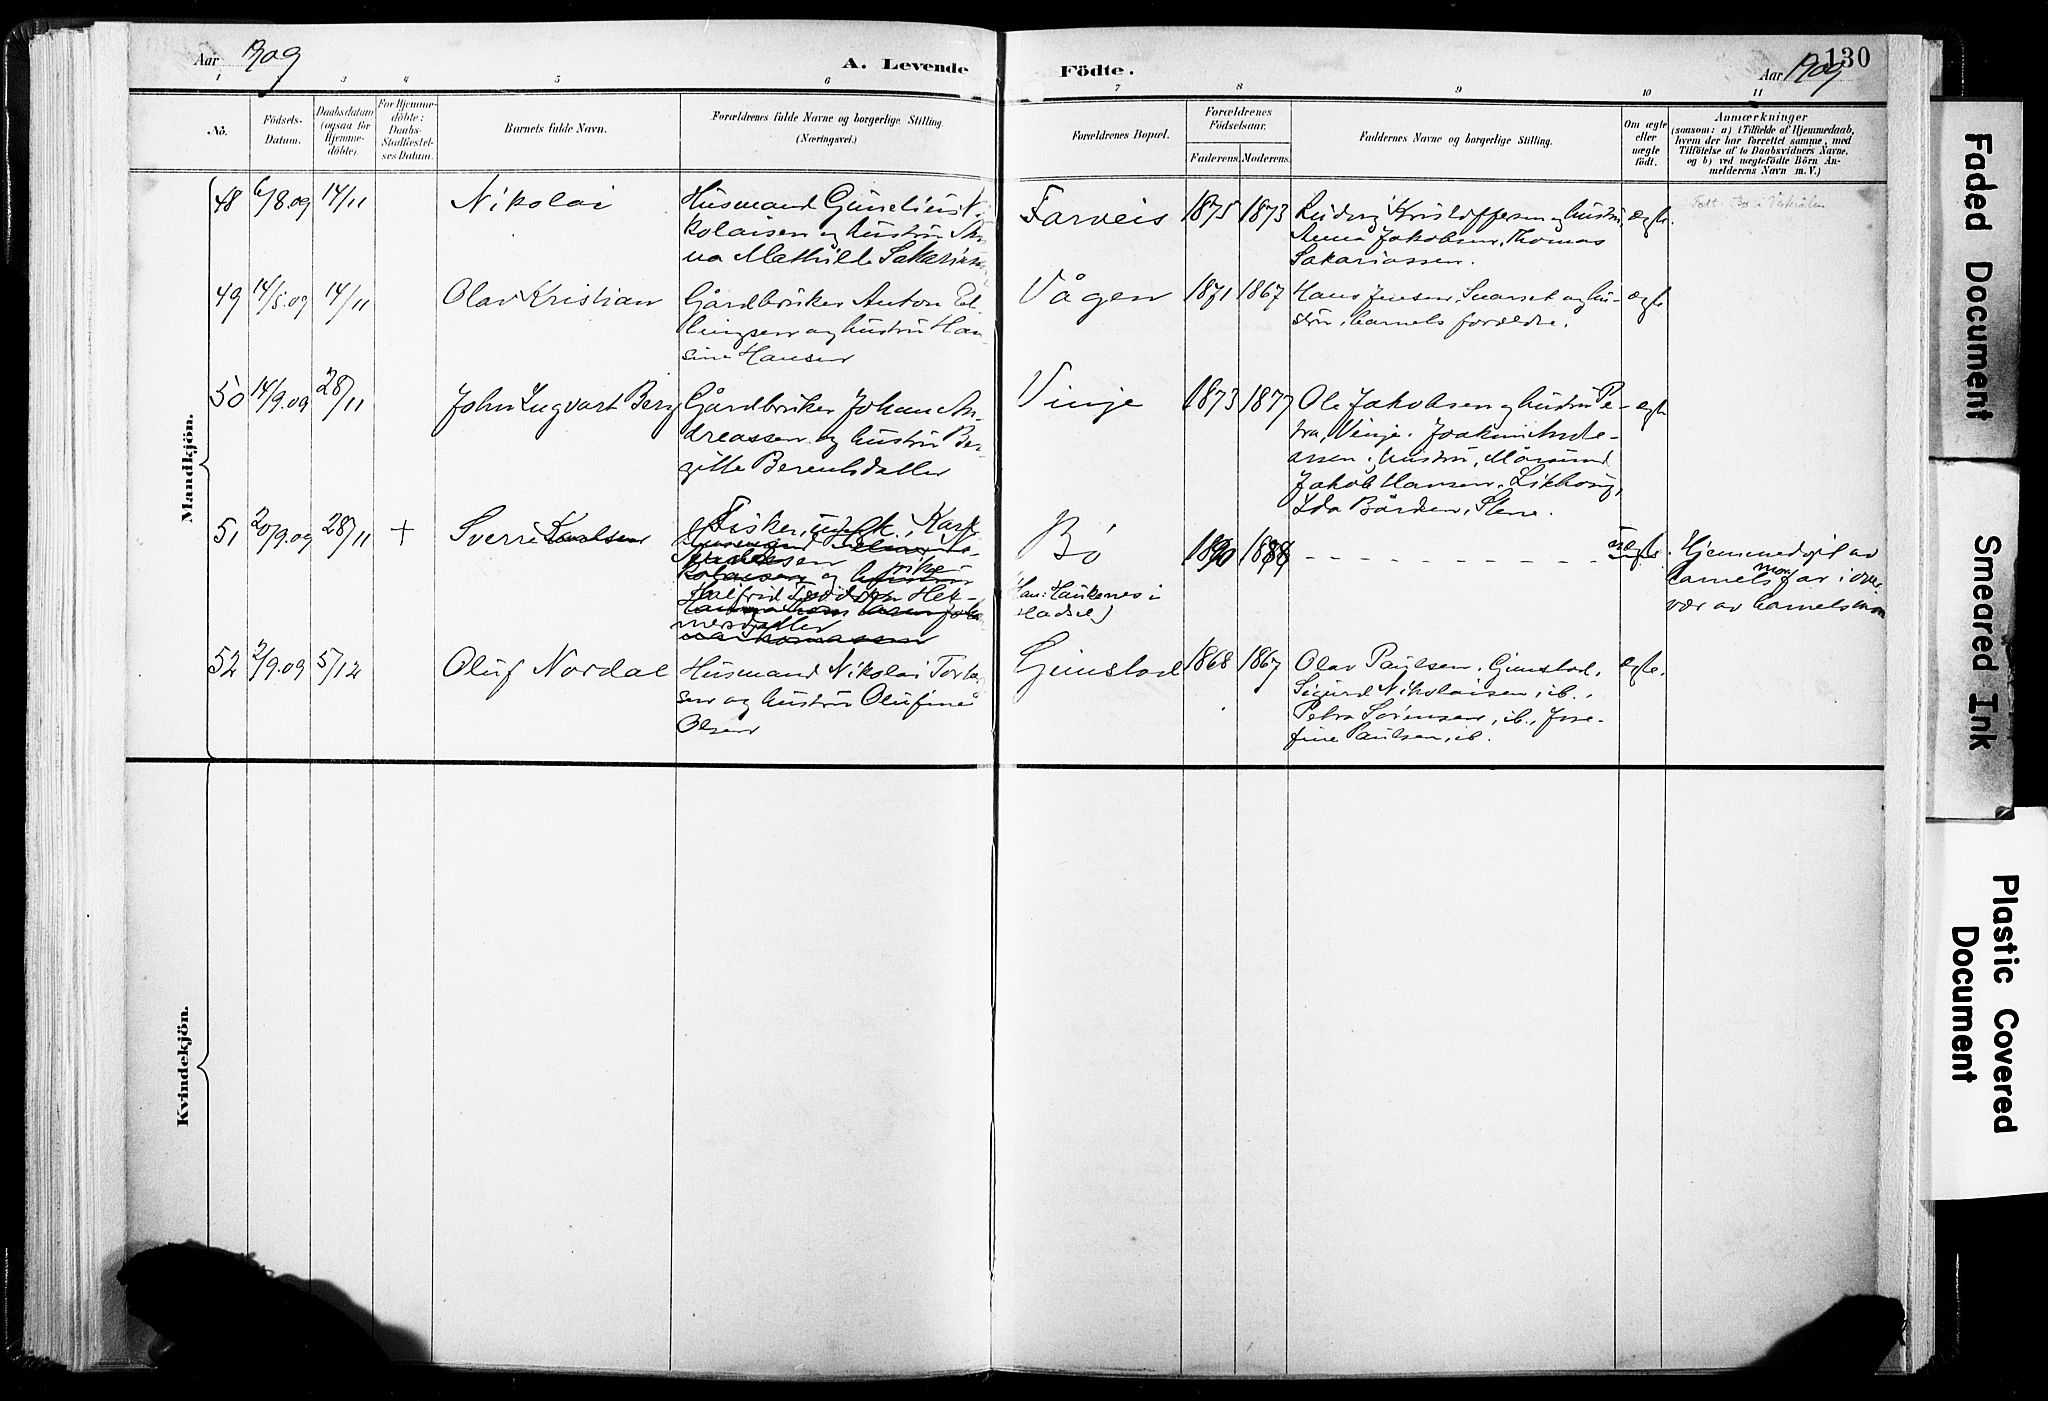 Aar 1909
A. Levende
Födte.
Aar 1909
130
1 2 3 4 5 6 7 8 9 10 11
No.
Födsels-
Datum.
Daabsdatum
(ogsaa for
Hjemme-
döbte).
For Hjemme-
döbte:
Daabs-
Stadfæstel-
ses Datum.
Barnets fulde Navn.
Forældrenes fulde Navne og borgerlige Stilling.
(Næringsvei.)
Forældrenes Bopæl.
Forældrenes
Födselsaar.
Faderens.
Moderens.
Faddernes Navne og borgerlige Stilling.
Om ægte
eller
uægte
födt.
Anmærkninger
(saasom: a) i Tilfælde af Hjemmedaab,
hvem der har forrettet samme, med
Tilföielse af to Daabsvidners Navne,
og b) ved uægtefödte Börn An-
melderens Navn m. V.)
Mandkjön.
48 6/8.09 14/11
Nikolai
Husmand Gunelius Ni-
kolaisen og hustru An-
na Mathilde Sakariasen
Farveis
1875 1873
Ludvig Kristoffersen og hustru,
Anna Jakobsen, Thomas
Sakariassen.
ægte.
Født Bø i Vesterålen
49 14/8.09 14/11
Olav Kristian
Gårdbruker Anton El-
lingsen og hustru Han-
sine Hansen
Vågen
1871 1867
Hans Jensen, og hu-
stru, barnets forældre.
ægte
50 14/9.09 28/11
John Ingvart Berg
Gårdbruker Johan An-
dreassen og hustru Ber-
gitte Berentsdatter
Vinje
1873 1877
Ole Jakobsen og hustru Pe-
tra, Vinje. Joakim Andre-
assen, hustru,
Jakob Hansen,
Ida Bårdsen, Stene.
ægte
51 20/9.09 28/11 +
Sverre Karlsen
Fisker, Karl
og
Halfrid
Bø
(Han: Haukenes i
Hadsel)
1890 1888
uægte.
Hjemmedøpt av
barnets far i
vær av barnets mor
52 2/9.09 5/12
Oluf Nordal
Husmand Nikolai
sen og hustru Olufine
Olsen
Gimstad
1868 1867
Olav Paulsen, Gimstad,
Sigurd Nikolaisen, ib.,
Petra Sørensen, ib., Jose-
fine Paulsen, ib.
ægte.
Kvindekjön.
Faded Document
Smeared Ink
Plastic Covered
Document